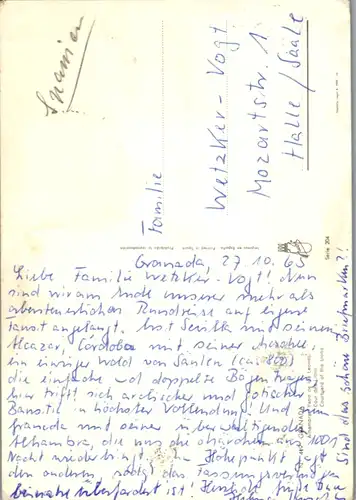 Spanien
Familie
Wetzker-Vogt
Mozartstr. 1
Halle/Saale
Serie 204
Granada, 27.10.65
Liebe Familie Wetzker-Vogt! Nun
sind wir am Ende unserer mehr als
abenteuerlichen Rundreise auf eigene
Faust angelangt. Erst Sevilla mit seinem
Alcazar, Cordoba mit seiner Moschee
ein einziger Wald von Säulen (ca. 850)
die einfache und doppelte Bögen tragen
hier trifft sich arabischer und gotischer
Baustil in höchster Vollendung! Und nun
Granada mit seiner überwältigenden
Alhambra, die uns die Märchen aus 1001
Nacht wiederbringt. Ein Höhepunkt jagt
den anderen, sodaß das Fassungsvermögen
beinahe überfordert ist! Herzliche Grüße
Sind das schöne Briefmarken?!